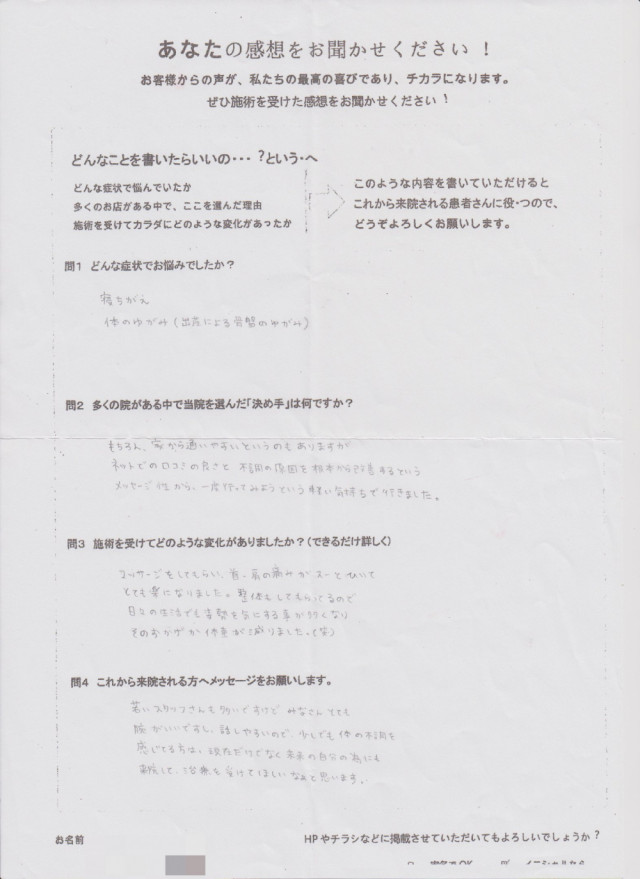 あなたの感想をお聞かせください！
お客様からの声が、私たちの最高の喜びであり、チカラになります。
ぜひ施術を受けた感想をお聞かせください！
どんなことを書いたらいいの・・・？という・へ
どんな症状で悩んでいたか
多くのお店がある中で、ここを選んだ理由
施術を受けてカラダにどのような変化があったか
このような内容を書いていただけると
これから来院される患者さんに役・つので、
どうぞよろしくお願いします。
問1 どんな症状でお悩みでしたか？
寝ちがえ
体のゆがみ(出産による骨盤のゆがみ)
問2 多くの院がある中で当院を選んだ「決め手」は何ですか？
もちろん、家から通いやすいというのもありますが
ネットでの口コミの良さと 不調の原因を根本から改善するという
メッセージ性から、一度行ってみようという軽い気持ちで行きました。
問3 施術を受けてどのような変化がありましたか？（できるだけ詳しく）
マッサージをしてもらい、首、肩の痛みがスーとひいて
とても楽になりました。整体もしてもらってるので
日々の生活でも姿勢を気にする事が多くなり
そのおかげか体重が減りました。(笑)
問4 これから来院される方へメッセージをお願いします。
若いスタッフさんも多いですけど みなさんとても
腕がいいですし、話しやすいので、少しでも体の不調を
感じてる方は、現在だけでなく未来の自分の為にも
来院して、治療を受けてほしいなぁと思います。
お名前
HPやチラシなどに掲載させていただいてもよろしいでしょうか？